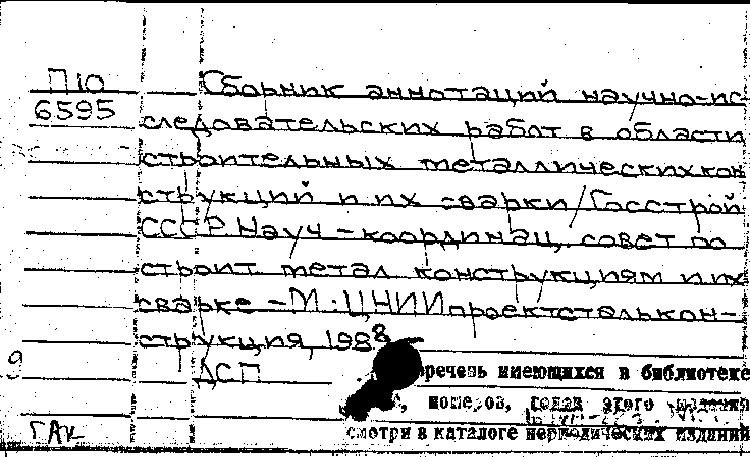 П10 Сборник аннотаций научно-ис
6595 следовательских работ в области
строительных металлических кон
струкций и их сварки/Госстрой
СССР Науч-координац. совет по
строит. метал конструкциям и их
сварке-М.:ЦНИИпроектсталькон-
струкция, 1988
ДСП
перечень имеющихся в библиотеке
номеров, годов этого издания
ГАК смотри в каталоге периодических изданий